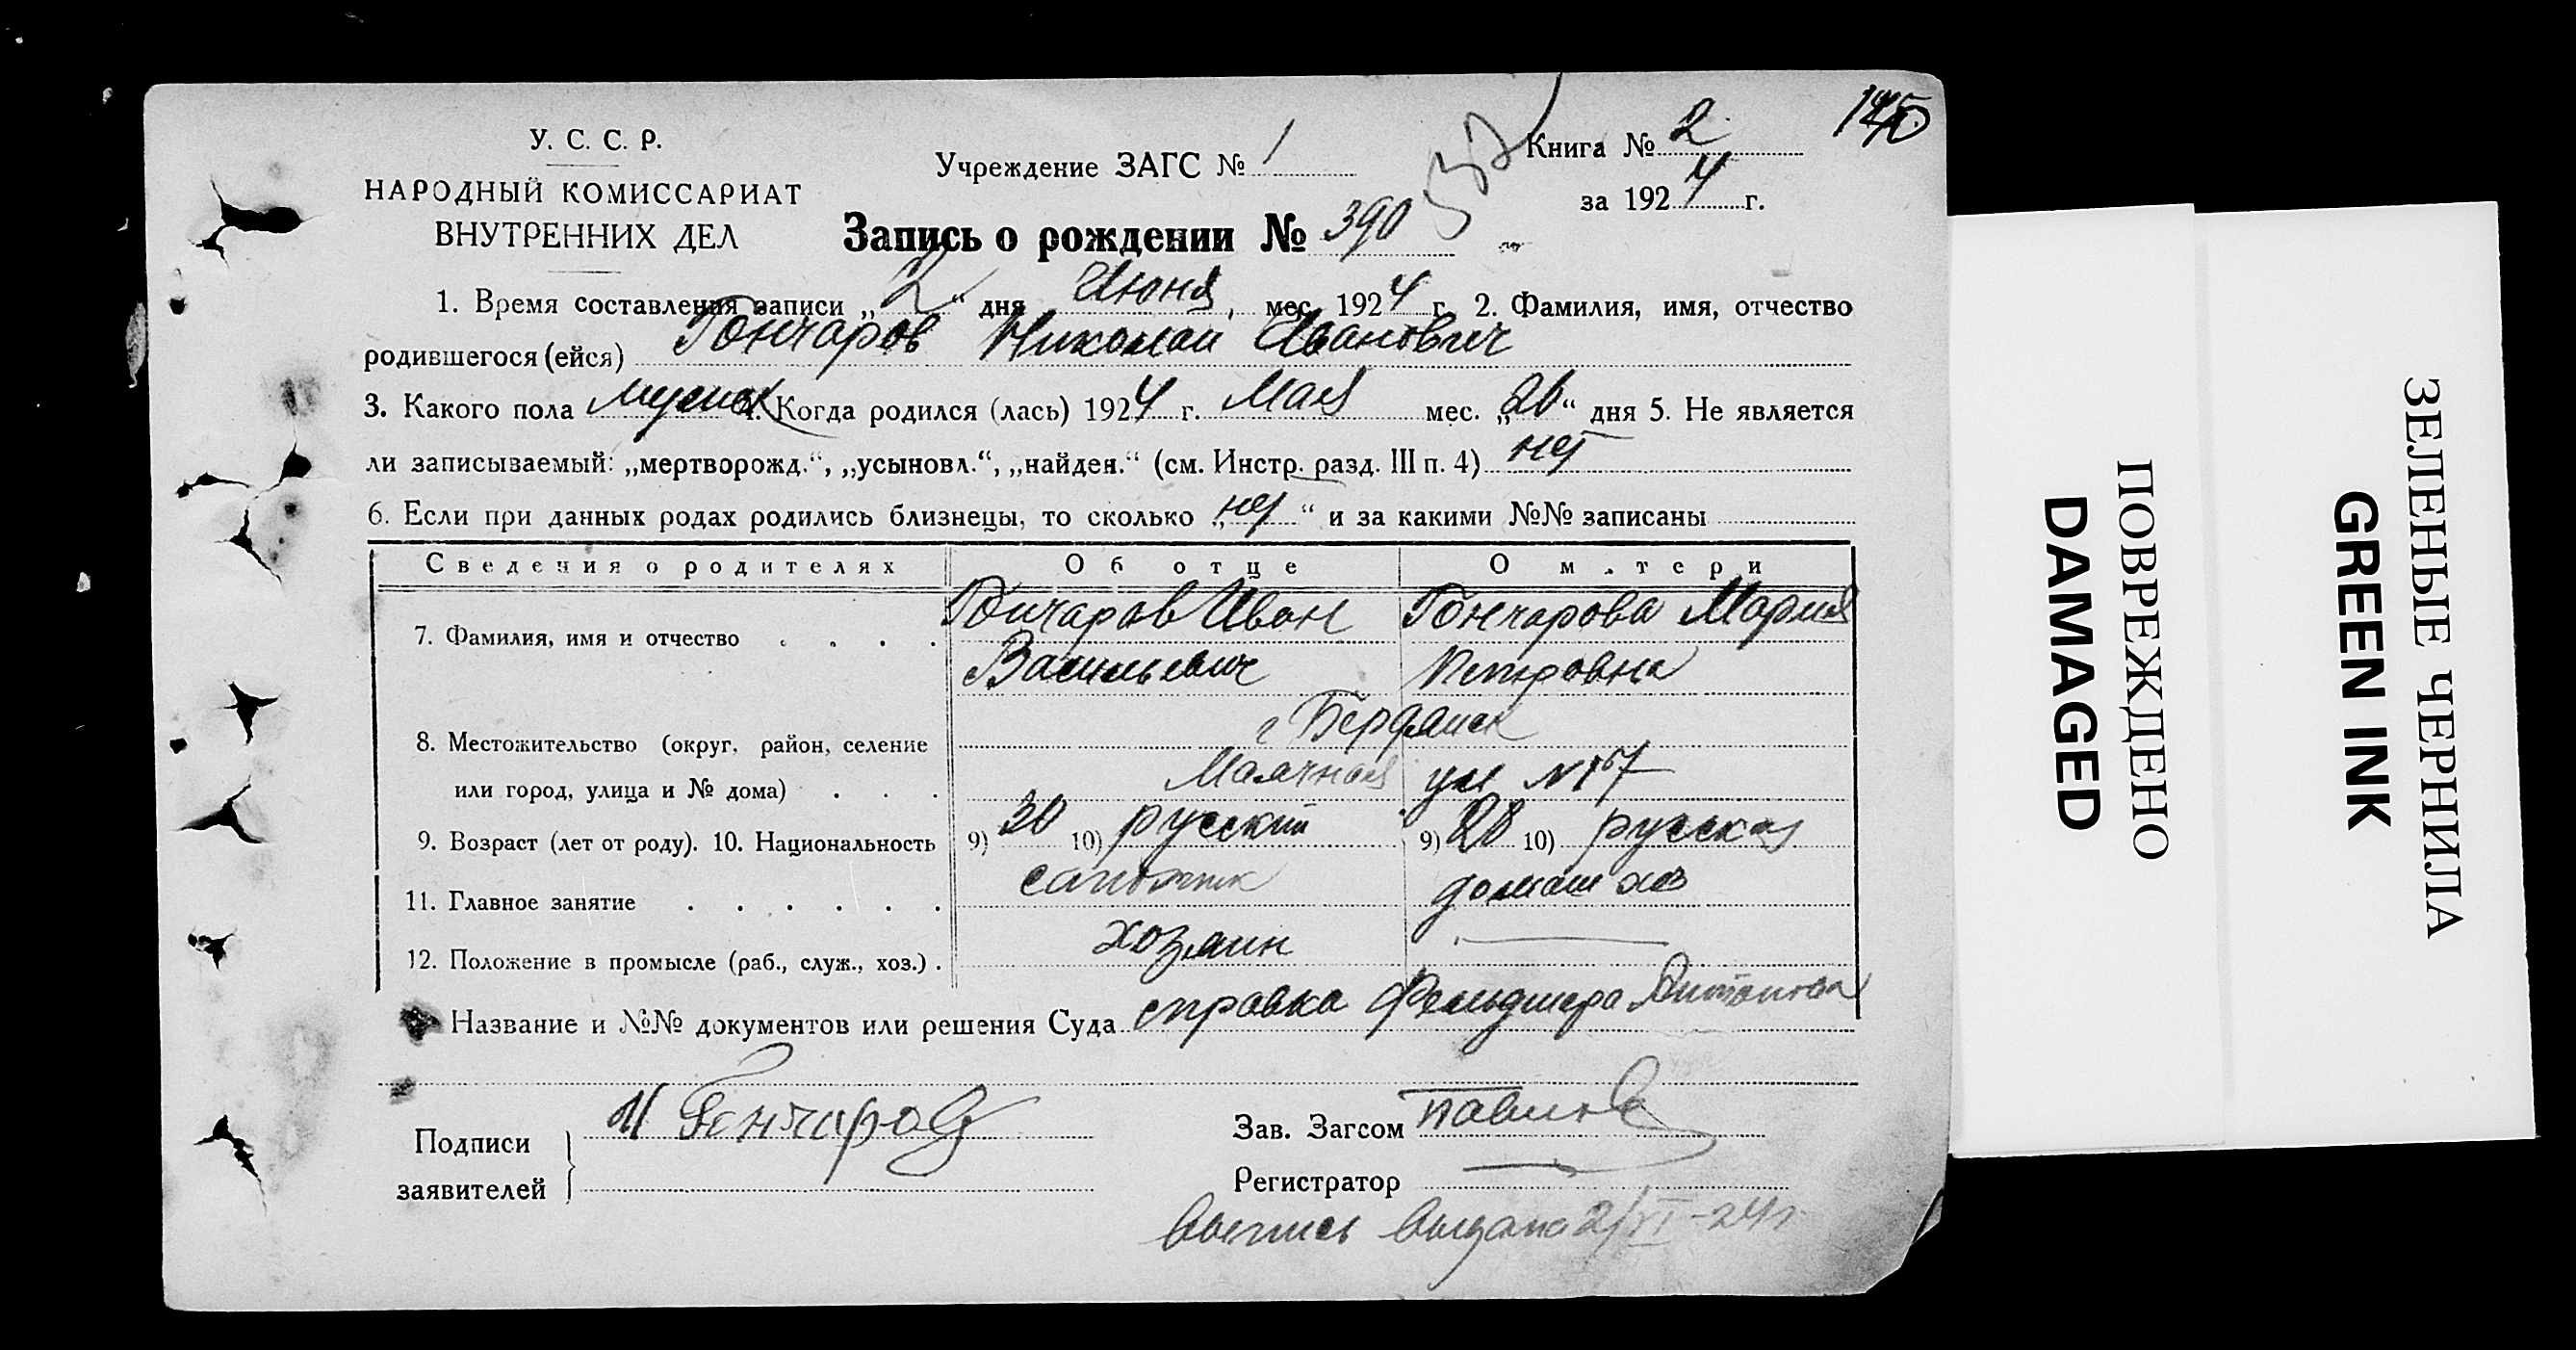 У. С. С. Р.
НАРОДНЫЙ КОМИССАРИАТ
ВНУТРЕННИХ ДЕЛ
Учреждение ЗАГС № 1
Книга № 2
за 1924 г.
Запись о рождении № 390
1. Время составления записи „2“ дня Июня, мес. 1924 г. 2. Фамилия, имя, отчество
родившегося (ейся) Гончаров Николай Иванович
3. Какого пола мужск 4. Когда родился (лась) 1924 г. Мая мес. „26“ дня 5. Не является
ли записываемый: „мертворожд.“, „усыновл.“, „найден.“ (см. Инстр. разд. III п. 4) нет
6. Если при данных родах родились близнецы, то сколько „нет“ и за какими №№ записаны
Сведения о родителях Об отце О матери
7. Фамилия, имя и отчество . . . . Гончаров Иван Гончарова Мария
Васильевич Петровна
8. Местожительство (округ, район, селение г Бердянск
или город, улица и № дома) . . . Маячная ул № 167
9. Возраст (лет от роду). 10. Национальность 9) 30 10) русский 9) 28 10) русская
11. Главное занятие . . . . . . сапожник домаш хоз
12. Положение в промысле (раб., служ., хоз.) . хозяин —
Название и №№ документов или решения Суда справка Фельдшера
Подписи
заявителей
И Гончаров
Зав. Загсом Павлов
Регистратор
Выпись выдана 2/VI-24 г
ПОВРЕЖДЕНО
DAMAGED
ЗЕЛЕНЫЕ ЧЕРНИЛА
GREEN INK